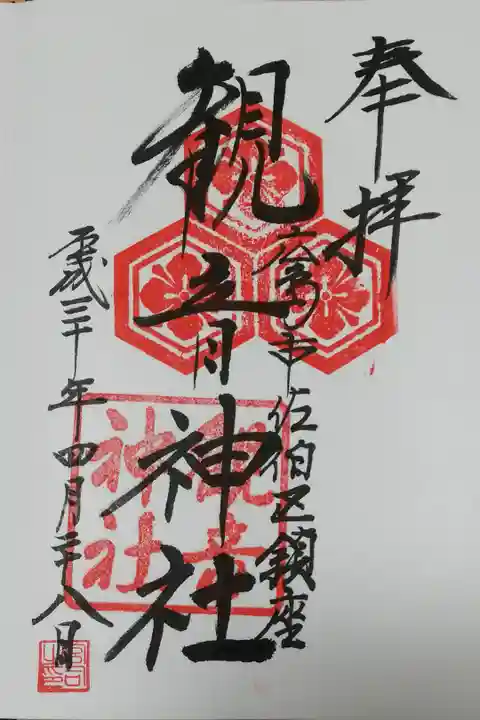 奉拝
広島市佐伯区鎮座
観音神社
平成三十年四月二十八日
観音神社